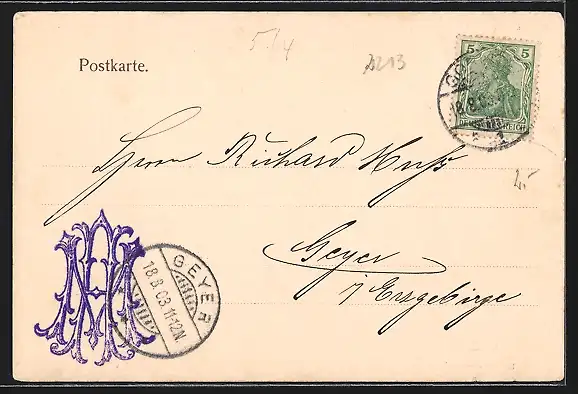 5/4
Postkarte.
5 5
18.8.03.
DEUTSCHES REICH
Herrn Richard Huß
Geyer
i/Erzgebirge
GEYER
18.8.03.11-12N.